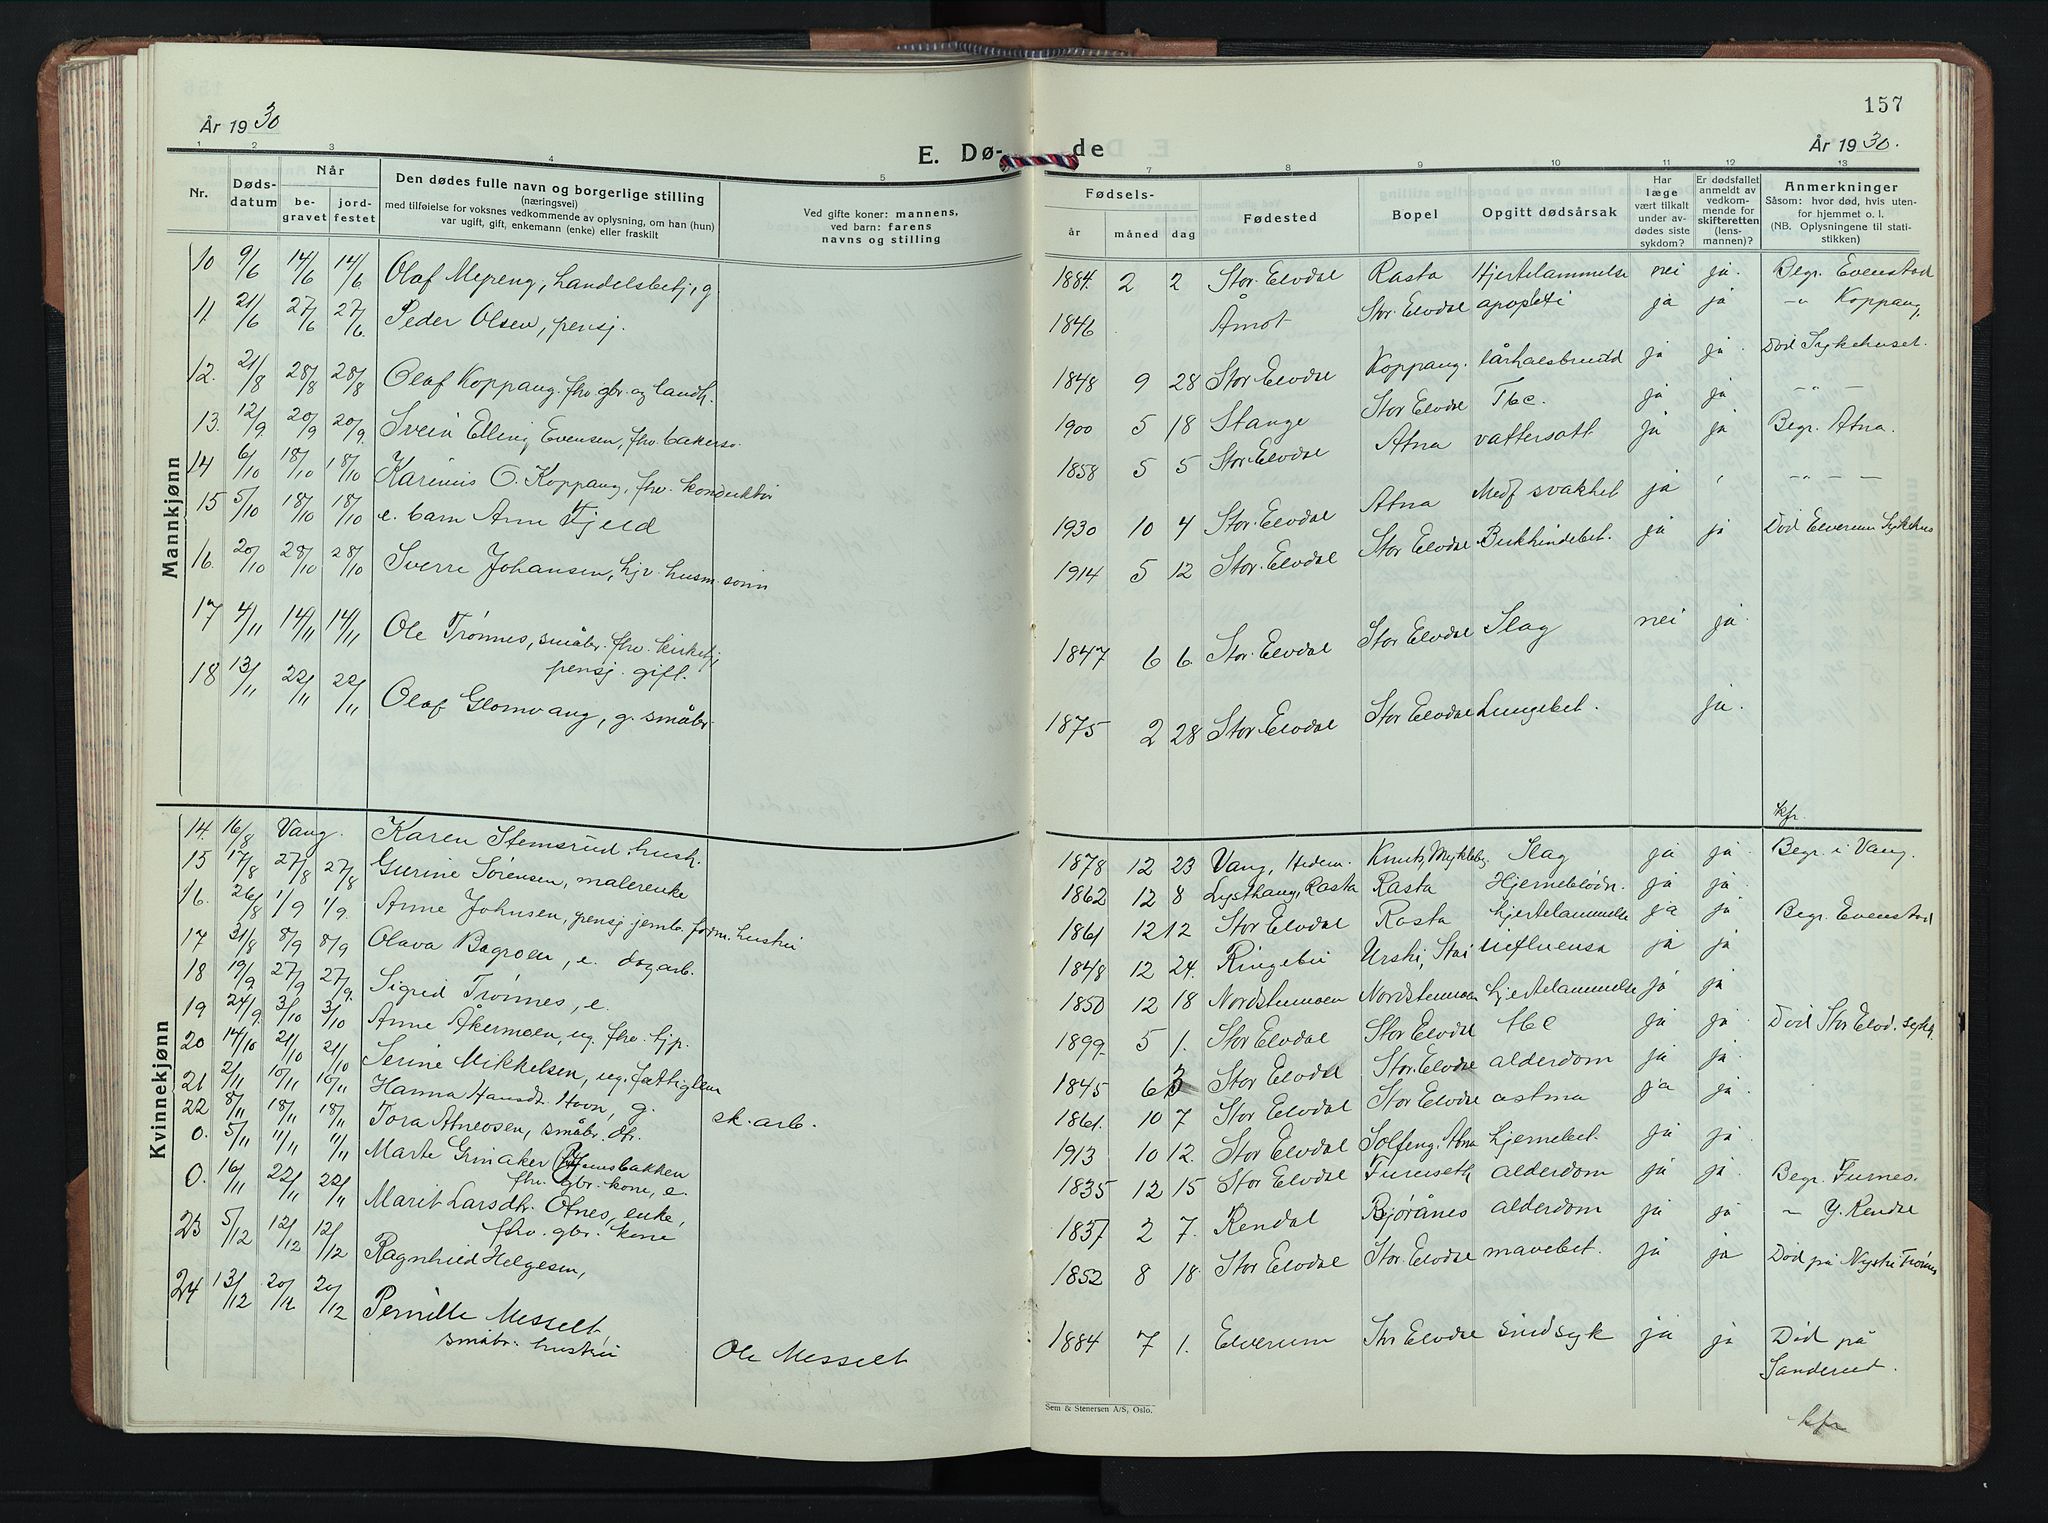 157
År 1930
E. Dø-
de
År 1930.
1 2 3 4 5 7 8 9 10 11 12 13
Nr.
Døds-
datum
Når
be-
gravet
jord-
festet
Den dødes fulle navn og borgerlige stilling
(næringsvei)
med tilføielse for voksnes vedkommende av oplysning, om han (hun)
var ugift, gift, enkemann (enke) eller fraskilt
Ved gifte koner: mannens,
ved barn: farens
navns og stilling
Fødsels-
år måned dag
Fødested
Bopel
Opgitt dødsårsak
Har
læge
vært tilkalt
under av-
dødes siste
sykdom?
Er dødsfallet
anmeldt av
vedkom-
mende for
skifteretten
(lens-
mannen)?
Anmerkninger
Såsom: hvor død, hvis uten-
for hjemmet o. l.
(NB. Oplysningene til stati-
stikken)
Mannkjønn
10 9/6 14/6 14/6 Olaf Myreng, handelsbetj, g 1884. 2 2 Stor-Elvdal Rasta Hjertelammelse nei ja. Begr. Evenstad
11. 21/6 27/6 27/6 Peder Olsen, pensj. 1846 Åmot Stor. Elvdal apopleksi ja ja -"- Koppang,
12. 21/8 28/8 28/8 Olaf Koppang. fhv gbr. og landh. 1848 9 28 Stor Elvdal Koppang. lårhalsbrudd ja ja. Død Sykehuset.
13. 12/9 20/9 20/9. Svein Elling Evensen, fhv. bakersv. 1900 5 18 Stange Stor Elvdal Tbc. ja ja -"-
14 6/10 18/10 18/10 Karinius O. Koppang, fhv. konduktør 1858 5 5 Stor. Elvdal Atna vattersott ja ja Begr. Atna.
15 5/10 18/10 18/10 e. barn Arne Fjeld 1930 10 4 Stor. Elvdal Atna Medf svakhet ja -"-
16. 20/10 28/10 28/10 Sverre Johansen, hjv. husm. sønn 1914 5 12 Stor. Elvdal Stor Elvdal Bukhindebet. ja ja Død Elverum Sykehus
17 4/11 14/11 14/11 Ole Trønnes, småbr. fhv. kirketj.
pensj. gift. 1847 6 6. Stor. Elvdal Stor Elvdal Slag nei ja.
18 13/11 22/11 22/11 Olaf Glomvang, g. småbr. 1875 2 28 Stor Elvdal Stor Elvdal Lungebet. ja.
kfr.
Kvinnekjønn
14. 16/8 Vang. Karen Stemsrud. hush. 1878 12 23 Vang, Hedem. Knuts, Mykleby, Slag ja ja. Begr. i Vang.
15 17/8 27/8 27/8 Gurine Sørensen, malerenke 1862 12 8 Lysthaug, Rasta Rasta Hjerneblødn. ja ja
16. 26/8 1/9 1/9. Anne Johnsen, pensj. jernb. form. hustru 1861 12 12 Stor Elvdal Rasta hjertelammelse ja ja Begr. Evenstad
17 31/8 8/9 8/9 Olava Bagroen, e. dagarb. 1848 12 24. Ringebu Urshi, Stai influensa ja ja
18 19/9 27/9 27/9. Sigrid Trønnes, e. 1850 12 18 Nordstumoen Nordstumoen hjertelammelse ja ja
19 24/9 3/10 3/10 Anne Åkermoen, ug. fhv. hjp. 1899. 5 1. Stor Elvdal Stor Elvdal tbc ja ja. Død Stor Elvd. sykeh.
20 14/10 21/10 21/10 Serine Mikkelsen, ug. fattiglem 1845 6 3 Stor Elvdal Stor. Elvdal alderdom ja ja.
21 2/11 10/11 10/11 Hanna Hansdt. Hovn, g. sk. arb. 1861. 10 7 Stor Elvdal Stor Elvdal astma ja ja.
22 8/11 18/11 18/11 Tora Atneosen, småbr. dtr. 1913 10 12. Stor Elvdal Solfeng. Atna hjernebet. ja ja.
0. 5/11 11/11 11/11 Marte Grinaker Hemsbakken
fhv. gbr. kone, e. 1835 12 15 Stor Elvdal Furuseth alderdom ja ja. Begr. Furnes.
0. 16/11 22/11 22/11 Marit Larsdtr. Otnes, enke,
fhv. gbr. kone 1837 2 7. Rendal Bjørånes alderdom ja ja -"- Y. Rendal
23 5/12 12/12 12/12 Ragnhild Helgesen, 1852 8 18. Stor Elvdal Stor. Elvdal mavebet. ja ja Død på Trønnes
24 13/12 20/12 20/12 Pernille Messelt
småbr. hustru Ole Messelt 1884 7 1. Elverum Stor Elvdal sindsyk ja ja Død på
Sanderud.
Sem & Stenersen A/S, Oslo.
kfr